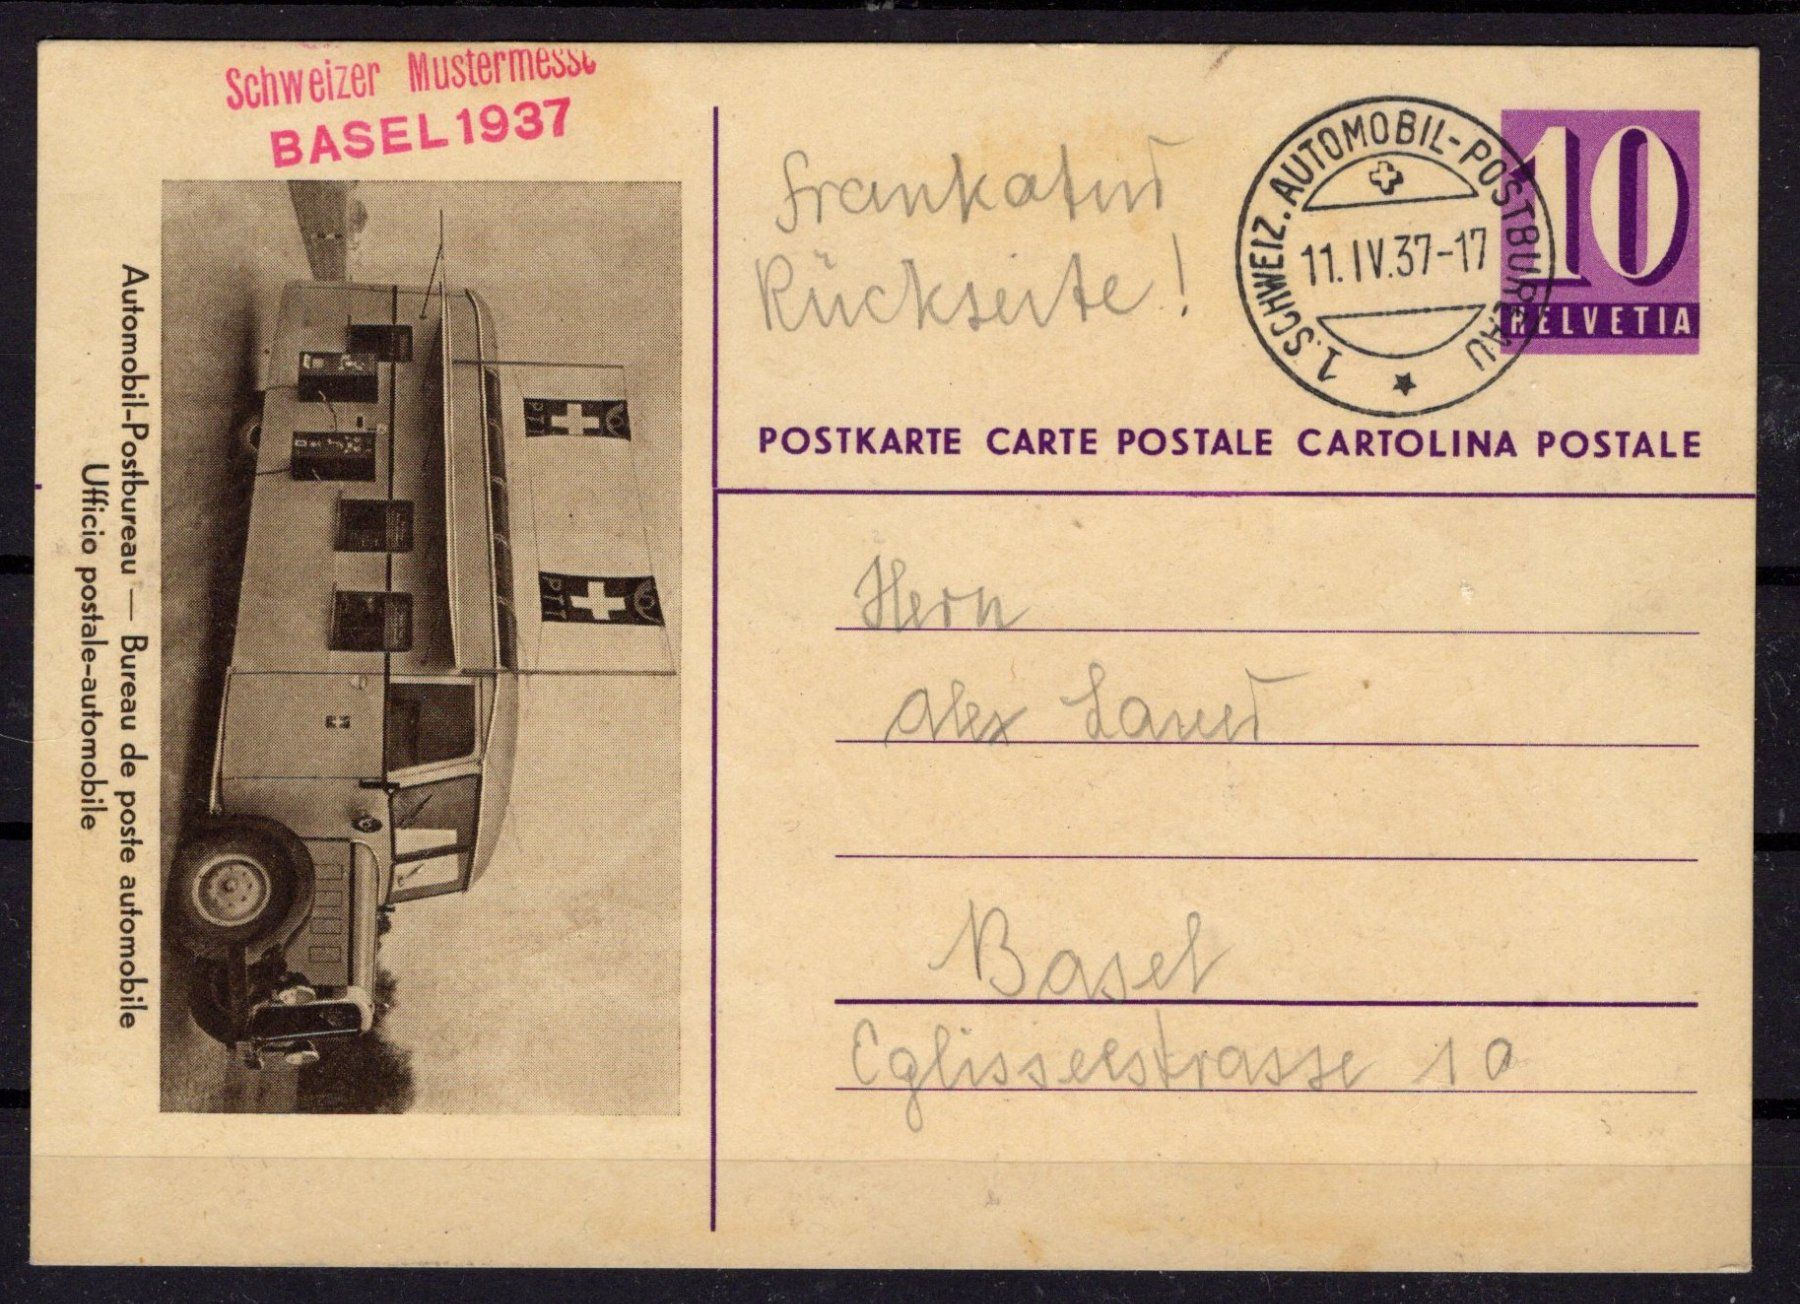 Schweizer Mustermesse
BASEL 1937
Automobil-Postbureau — Bureau de poste automobile
Ufficio postale-automobile
PTT
PTT
Frankatur
Rückseite!
1. SCHWEIZ. AUTOMOBIL-POSTBUREAU
11.IV.37-17
10
HELVETIA
POSTKARTE CARTE POSTALE CARTOLINA POSTALE
Hern
Alex
Basel
Eglisseestrasse 10